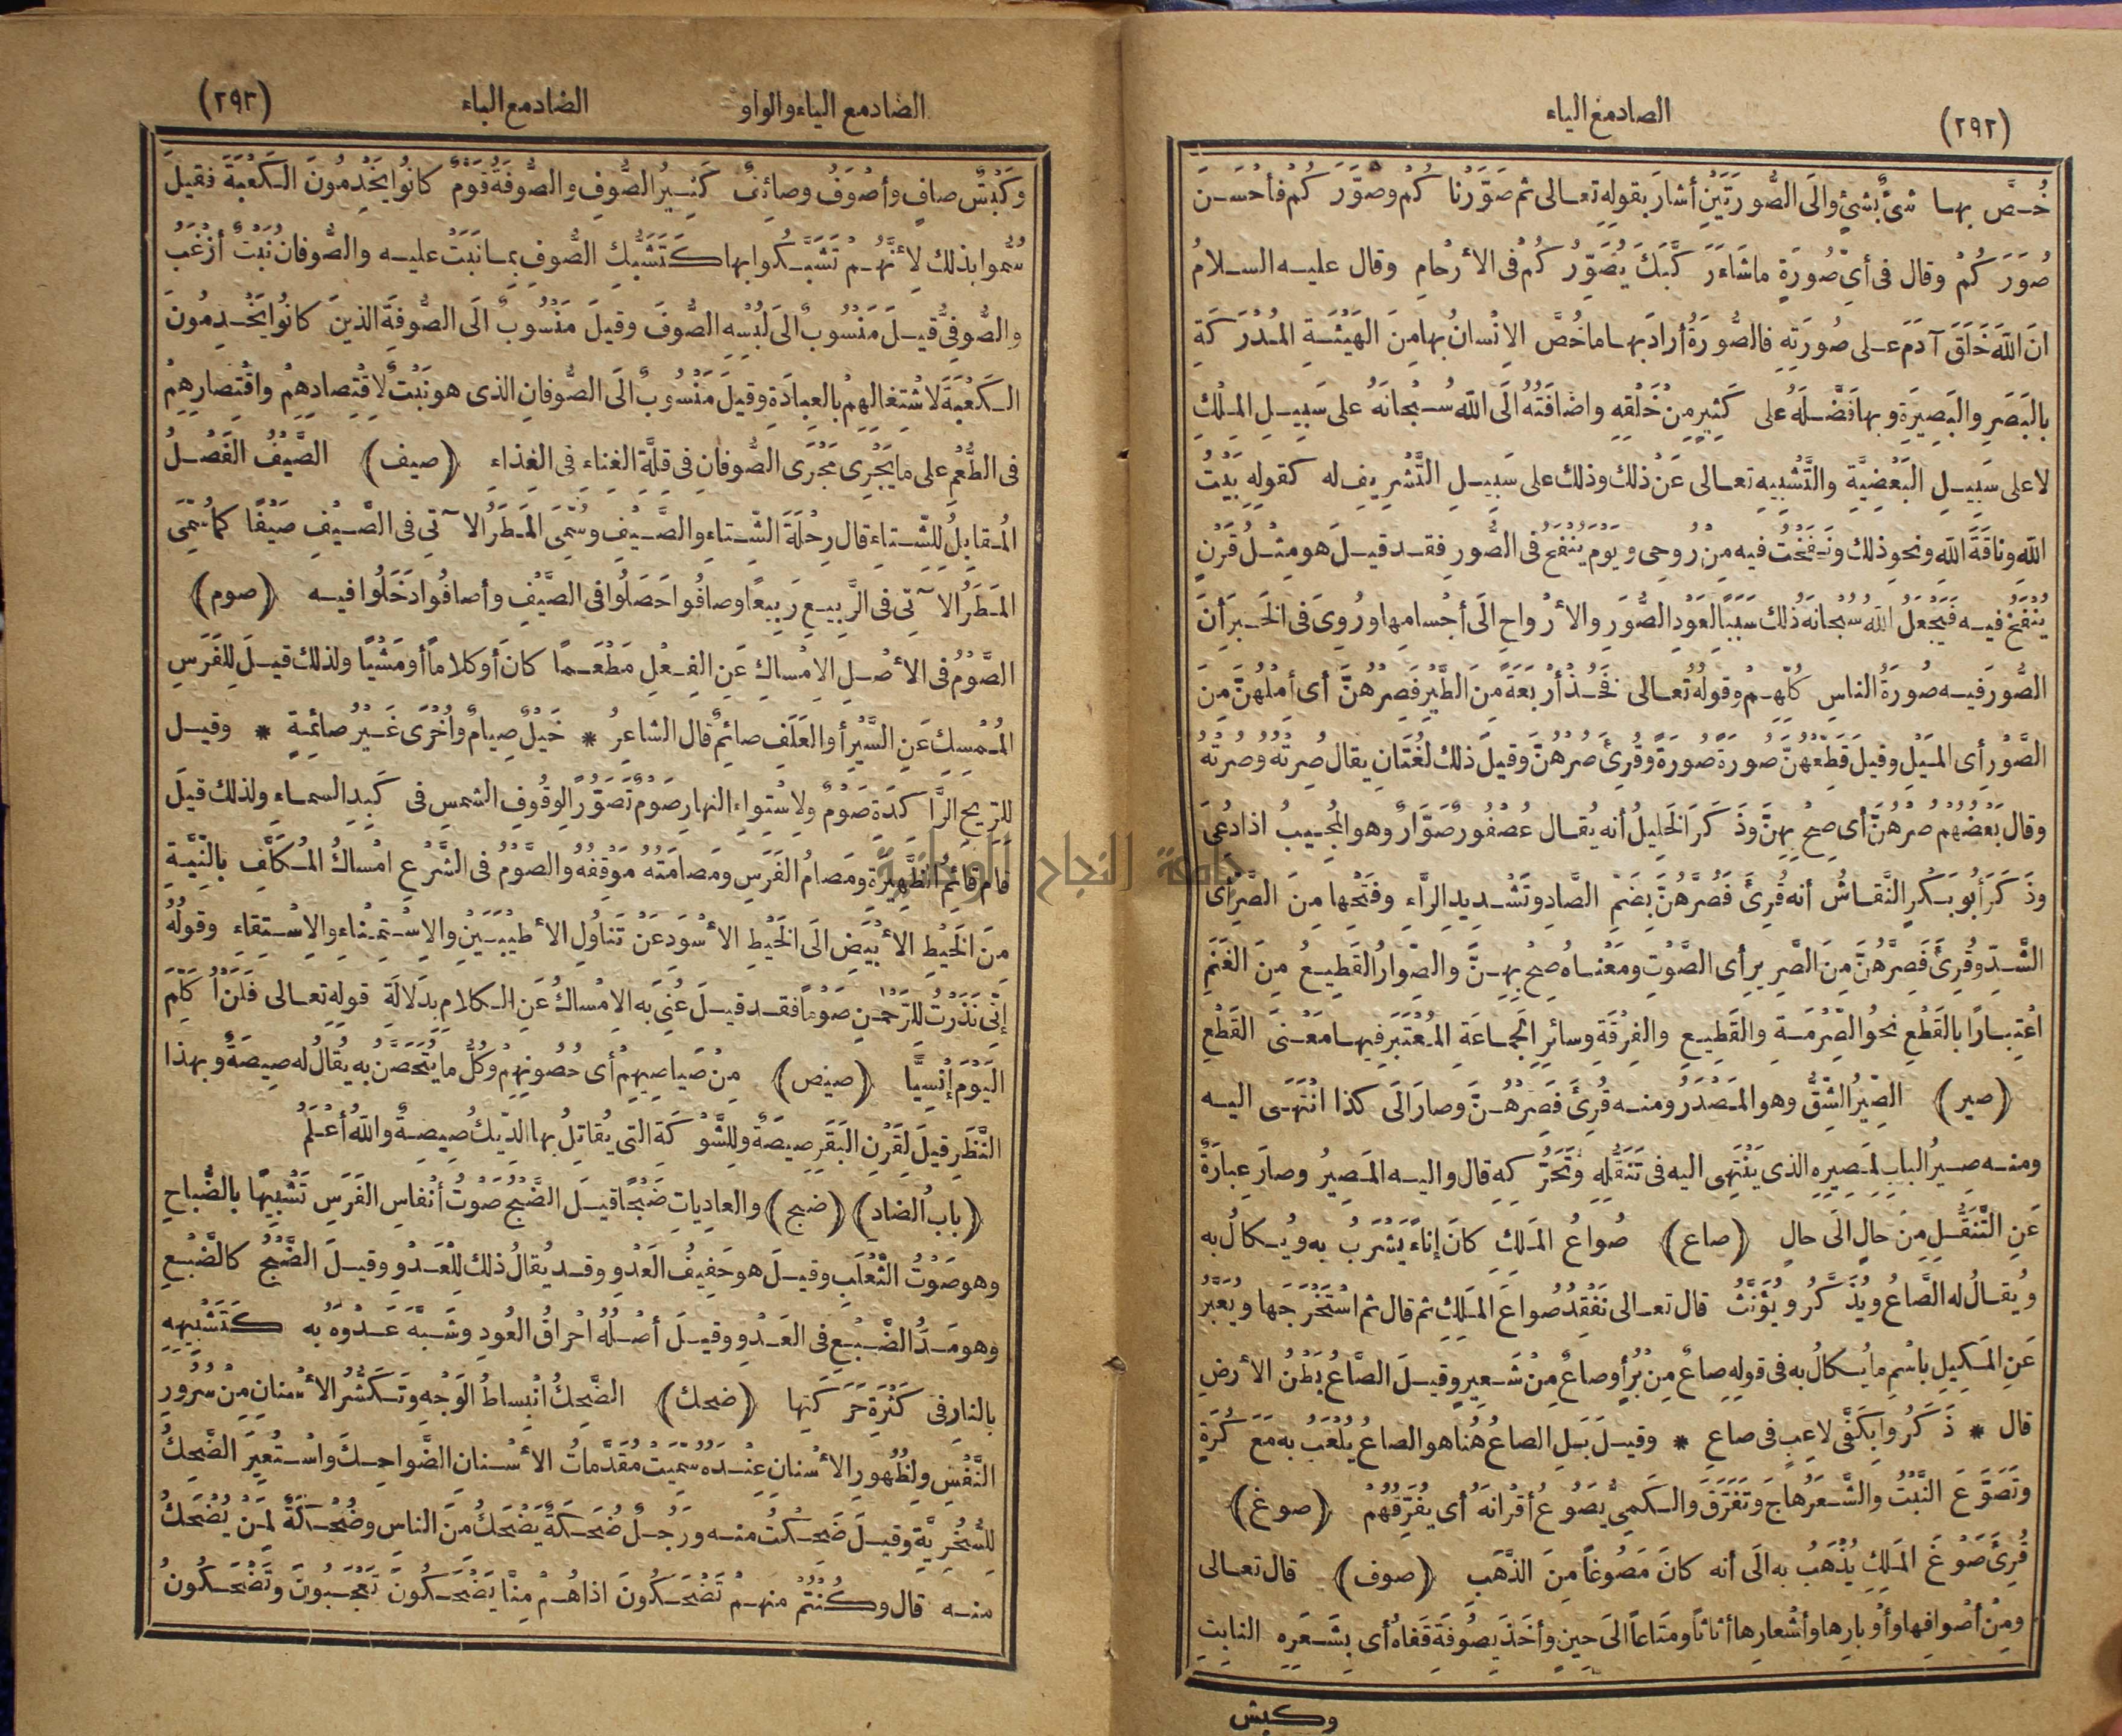 (٢٩٢)
الصاد مع الياء
خُصَّ بها شئٌ بشئٍ والَى الصُّورَتَيْنِ أشارَ بقوله تعالى ثم صَوَّرْنا كُمْ وصَوَّرَ كُمْ فأحْسَنَ
صُوَرَ كُمْ وقال فى أىِّ صُورَةٍ ماشاءَ رَ كَّبَكَ يُصَوِّرُ كُمْ فى الأرْحامِ وقال عليه السلامُ
انَّ اللّهَ خَلَقَ آدَمَ على صُورَتِهِ فالصُّورَةُ أرادَ بها ماخُصَّ الإنْسانُ بها مِنَ الهَيْئَةِ المُدْرَ كَةِ
بالبَصَرِ والبَصِيرَةِ وبها فَضَّلَهُ على كَثِيرٍ مِنْ خَلْقِهِ واضافَتُهُ الَى اللّهِ سُبْحانَهُ على سَبِيلِ المِلْكِ
لا على سَبِيلِ البَعْضِيَّةِ والتَّشْبِيهِ تعالى عَنْ ذلك وذلك على سَبِيلِ التَّشْرِيفِ له كقوله بَيْتُ
اللّهِ وناقَةُ اللّهِ ونحوِ ذلك ونَفَخْتُ فيه مِنْ رُوحِى ويَوْمَ يُنْفَخُ فى الصُّورِ فقد قيلَ هو مِثْلُ قَرْنٍ
يُنْفَخُ فيه فَيَجْعَلُ اللّهُ سُبْحانَهُ ذلك سَبَبًا لِعَوْدِ الصُّوَرِ والأرْواحِ الَى أجْسامِها ورُوِىَ فى الخَبَرِ أنّ
الصُّورَ فيه صُورَةُ الناسِ كُلِّهِمْ وقوله تعالى فَخُذْ أرْبَعَةً مِنَ الطَّيْرِ فَصُرْهُنَّ أى أمِلْهُنَّ مِنَ
الصَّوْرِ أى المَيْلِ وقيلَ قَطِّعْهُنَّ صُورَةً صُورَةً وقُرِئَ صُرْهُنَّ وقيلَ ذلك لُغَتَانِ يقال صِرْتُهُ وصُرْتُهُ
وقال بَعْضُهُمْ صُرْهُنَّ أى صِحْ بِهِنَّ وذَ كَرَ الخَلِيلُ أنه يُقال عُصْفُورٌ صَوَّارٌ وهو المُجِيبُ اذا دُعِىَ
وذَ كَرَ أبُو بَكْرٍ النَّقاشُ أنه قُرِئَ فَصُرَّهُنَّ بِضَمِّ الصَّادِ وتَشْدِيدِ الرَّاءِ وفَتْحِها مِنَ الصَّرِّ أى
الشَّدِّ وقُرِئَ فَصِرَّهُنَّ مِنَ الصَّرِيرِ أى الصَّوْتِ ومَعْناهُ صِحْ بِهِنَّ والصِّوارُ القَطِيعُ مِنَ الغَنَمِ
اعْتِبارًا بالقَطْعِ نحوُ الصِّرْمَةِ والقَطِيعِ والفِرْقَةِ وسائرِ الجَماعَةِ المُعْتَبَرِ فيها مَعْنَى القَطْعِ
(صير) الصِّيرُ الشِّقُّ وهو المَصْدَرُ ومنه قُرِئَ فَصِرْهُنَّ وصارَ الَى كذا انْتَهَى اليه
ومنه صِيرُ البابِ لِمَصِيرِهِ الذى يَنْتَهِى اليه فى تَنَقُّلِهِ وتَحَرُّ كِهِ قال واليه المَصِيرُ وصارَ عِبارَةٌ
عَنِ التَّنَقُّلِ مِنَ حالٍ الَى حالٍ (صاع) صُواعُ المَلِكِ كانَ إناءً يُشْرَبُ به ويُكالُ به
ويُقالُ له الصَّاعُ ويُذَ كَّرُ ويُؤَنَّثُ قال تعالى نَفْقِدُ صُواعَ المَلِكِ ثم قال ثم اسْتَخْرَجَها ويُعَبَّرُ
عَنِ المَكِيلِ باسْمِ ما يُكالُ به فى قوله صاعٌ مِنْ بُرٍّ أو صاعٌ مِنْ شَعِيرٍ وقيلَ الصَّاعُ بَطْنُ الأرضِ
قال * ذَ كَرُوا بِكَفَّى لاعِبٍ فى صاعِ * وقيلَ بَلِ الصاعُ هُنا هو الصاعُ يُلْعَبُ به مَعَ كُرَةٍ
وتَصَوَّعَ النَّبْتُ والشَّعَرُ هاجَ وتَفَرَّقَ والكَمِىُّ يَصُوعُ أقْرانَهُ أى يُفَرِّقُهُمْ (صوغ)
قُرِئَ صَوْغَ المَلِكِ يُذْهَبُ به الَى أنه كانَ مَصُوغاً مِنَ الذَّهَبِ (صوف) قال تعالى
ومِنْ أصْوافِها وأوْبارِها وأشْعارِها أثاثاً ومَتاعاً الَى حِينٍ وأخَذَ بِصُوفَةِ قَفاهُ أى بِشَعَرِهِ النابِتِ
وكبش
الصاد مع الياء والواو
الضاد مع الباء
(٢٩٣)
وكَبْشٌ صافٍ وأصْوَفُ وصائِفٌ كَثِيرُ الصُّوفِ والصُّوفَةُ قَوْمٌ كانُوا يَخْدِمُونَ الكَعْبَةَ فقيلَ
سُمُّوا بذلك لأنَّهُمْ تَشَبَّكُوا بها كَتَشَبُّكِ الصُّوفِ بما نَبَتَ عليه والصُّوفانُ نَبْتٌ أزْغَبُ
والصُّوفِىُّ قيلَ مَنْسُوبٌ الَى لُبْسِهِ الصُّوفَ وقيلَ مَنْسُوبٌ الَى الصُّوفَةِ الذينَ كانُوا يَخْدِمُونَ
الكَعْبَةَ لاشْتِغالِهِمْ بالعِبادَةِ وقيلَ مَنْسُوبٌ الَى الصُّوفانِ الذى هو نَبْتٌ لاقْتِصادِهِمْ واقْتِصارِهِمْ
فى الطُّعْمِ على ما يَجْرِى مَجْرَى الصُّوفانِ فى قِلَّةِ الغَناءِ فى الغِذاءِ (صيف) الصَّيْفُ الفَصْلُ
المُقابِلُ لِلشِّتاءِ قال رِحْلَةَ الشِّتاءِ والصَّيْفِ وسُمِّىَ المَطَرُ الآتِى فى الصَّيْفِ صَيْفًا كما سُمِّىَ
المَطَرُ الآتِى فى الرَّبِيعِ رَبِيعًا وصافُوا حَصَلُوا فى الصَّيْفِ وأصافُوا دَخَلُوا فيه (صوم)
الصَّوْمُ فى الأصْلِ الإمْساكِ عَنِ الفِعْلِ مَطْعَمًا كانَ أو كلاماً أو مَشْيًا ولذلك قيلَ لِلْفَرَسِ
المُمْسِكِ عَنِ السَّيْرِ أو العَلَفِ صائِمٌ قال الشاعرُ * خَيْلٌ صِيامٌ وأُخْرَى غَيْرُ صائِمَةٍ * وقيل
للرِّيحِ الرَّا كِدَةِ صَوْمٌ ولاسْتِواءِ النهارِ صَوْمٌ تَصَوُّرًا لِوقُوفِ الشمسِ فى كَبِدِ السماءِ ولذلك قيلَ
قامَ قائِمُ الظَّهِيرَةِ ومَصامُ الفَرَسِ ومَصامَتُهُ مَوْقِفُهُ والصَّوْمُ فى الشَّرْعِ امْساكُ المُكَلَّفِ بالنِّيَّةِ
مِنَ الخَيْطِ الأبْيَضِ الَى الخَيْطِ الأسْوَدِ عَنْ تَنَاوُلِ الأطْيَبَيْنِ والإسْتِمْناءِ والإسْتِقاءِ وقولُهُ
إنِّى نَذَرْتُ لِلرَّحْمٰنِ صَوْماً فقد قيلَ عُنِىَ به الإمْساكُ عَنِ الكلامِ بِدَلالَةِ قوله تعالى فَلَنْ أُ كَلِّمَ
اليَوْمَ إنْسِيًّا (صيص) مِنْ صَياصِيهِمْ أى حُصُونِهِمْ وكُلُّ ما يُتَحَصَّنُ به يُقالُ له صِيصَةٌ وبهذا
النَّظَرِ قيلَ لِقَرْنِ البَقَرِ صِيصَةٌ ولِلشَّوْ كَةِ التى يُقاتِلُ بها الدِّيكُ صِيصِةٌ واللّهُ أعْلَمُ
(بابُ الضادِ) (ضبح) والعادِياتِ ضَبْحًا قيلَ الضَّبْحُ صَوْتُ أنْفاسِ الفَرَسِ تَشْبِيهًا بالضُّباحِ
وهو صَوْتُ الثَّعْلَبِ وقيلَ هو حَفِيفُ العَدْوِ وقد يُقالُ ذلك لِلْعَدْوِ وقيلَ الضَّبْحُ كالضَّبْعِ
وهو مَدُّ الضَّبْعِ فى العَدْوِ وقيلَ أصْلُهُ احْراقُ العُودِ وشَبَّهَ عَدْوَهُ به كَتَشْبِيهِهِ
بالنارِ فى كَثْرَةِ حَرَ كَتِها (ضحك) الضَّحِكُ انْبِساطُ الوَجْهِ وتَكَشُّرُ الأسْنانِ مِنْ سُرُورِ
النَّفْسِ ولِظُهُورِ الأسْنانِ عِنْدَهُ سُمِّيَتْ مُقَدَّماتُ الأسْنانِ الضَّواحِكَ واسْتُعِيرَ الضَّحِكُ
لِلسُّخْرِيَّةِ وقيلَ ضَحِكْتُ منه ورَجُلٌ ضُحَكَةٌ يَضْحَكُ مِنَ الناسِ وضُحْكَةٌ لِمَنْ يُضْحَكُ
منه قال وكُنْتُمْ منهم تَضْحَكُونَ اذا هُمْ مِنَّا يَضْحَكُونَ تَعْجَبُونَ وتَضْحَكُونَ
جامعة النجاح الوطنية